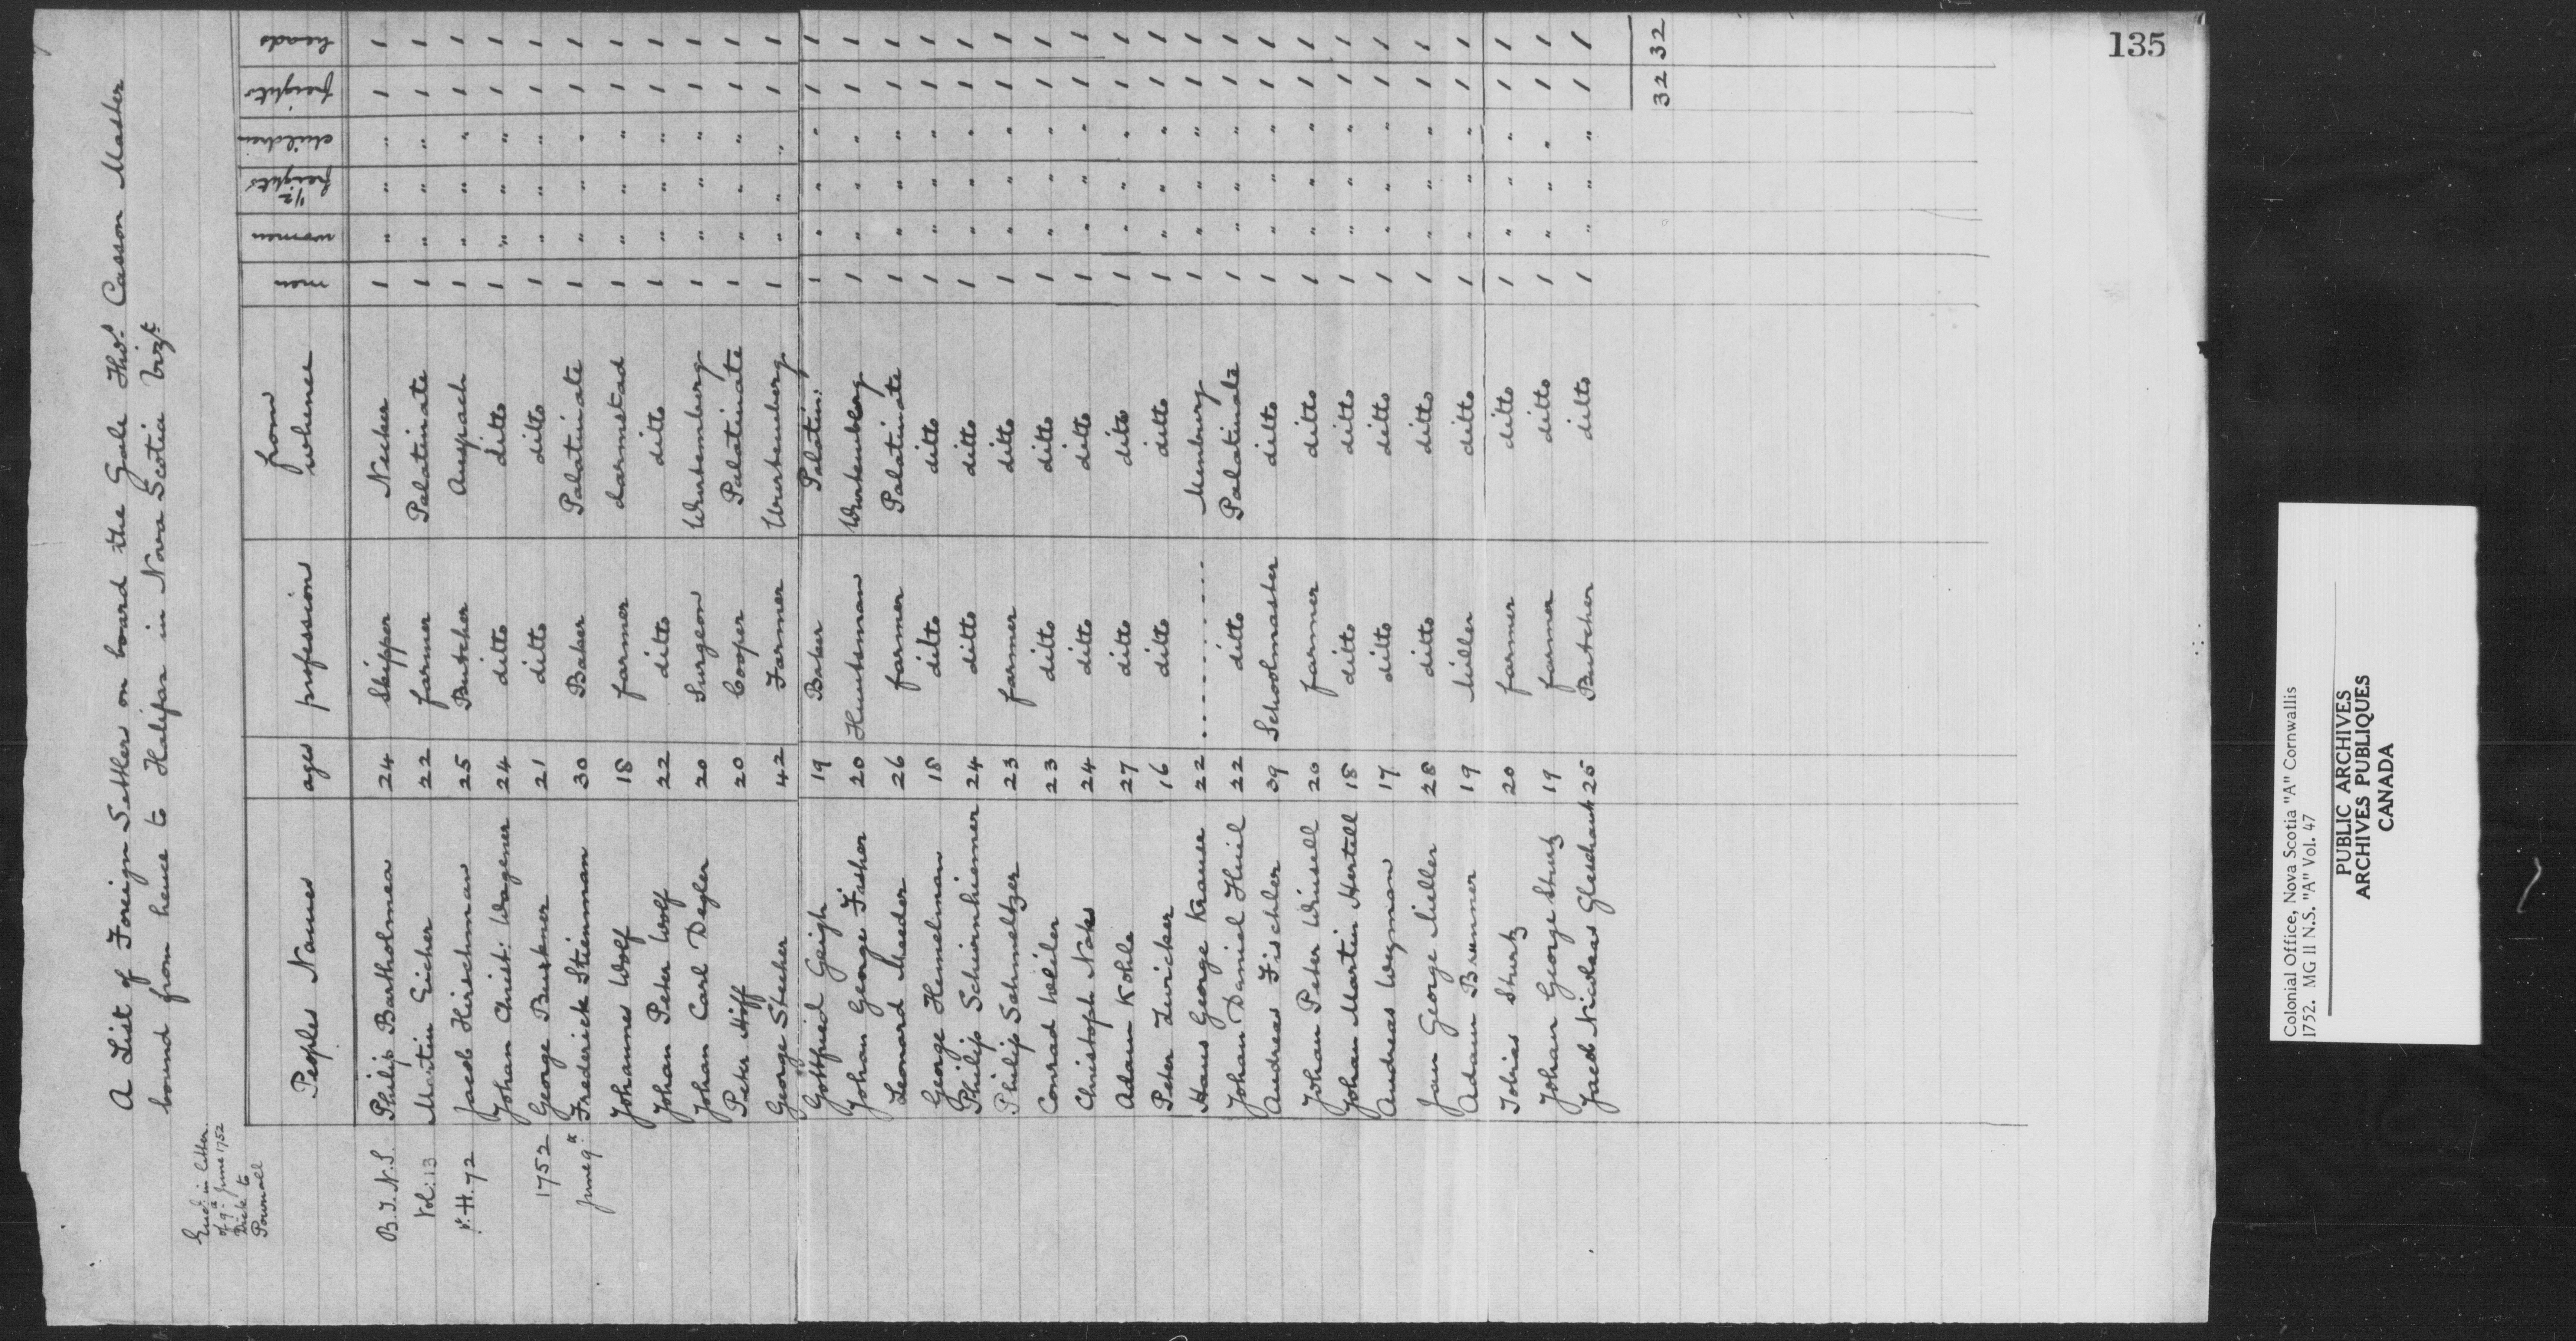 135
A List of Foreign Settlers on board the Gale Thos. Casson Master
bound from hence to Halifax in Nova Scotia vizt
Encl. in letter
of 9th June 1752
Dick to
Pownall
Peoples Names ages profession from whence men women 1/2 freights children freights heads
B.T.N.S. Philip Bartholmea 24 Skipper Necker 1 " " " 1 1
Vol: 13 Martin Eicher 22 farmer Palatinate 1 " " " 1 1
H. 72 Jacob Hirschman 25 Butcher Anspach 1 " " " 1 1
Johan Christ: Wagener 24 ditto ditto 1 " " " 1 1
1752 George Buskner 21 ditto ditto 1 " " " 1 1
June 9th Frederick Stienman 30 Baker Palatinate 1 " " " 1 1
Johannes Wolf 18 farmer darmstad 1 " " " 1 1
Johan Peter Wolf 22 ditto ditto 1 " " " 1 1
Johan Carl Degler 20 Surgeon Wurtemburg 1 " " " 1 1
Peter Hiff 20 Cooper Palatinate 1 " " " 1 1
George Stecher 42 Farmer Wurtemburg 1 " " " 1 1
Gottfried Geigh 19 Baker Palatin: 1 " " " 1 1
Johan George Fisher 20 Huntsman Wurtemburg 1 " " " 1 1
Leonard Meeder 26 farmer Palatinate 1 " " " 1 1
George Hemelman 18 ditto ditto 1 " " " 1 1
Philip Schiernhiemer 24 ditto ditto 1 " " " 1 1
Philip Schmeltzer 23 farmer ditto 1 " " " 1 1
Conrad Weiler 23 ditto ditto 1 " " " 1 1
Christoph Nobs 24 ditto ditto 1 " " " 1 1
Adam Kohle 27 ditto ditto 1 " " " 1 1
Peter Zwicker 16 ditto ditto 1 " " " 1 1
Hans George Krause 22 ......... Menburg 1 " " " 1 1
Johan Daniel Huil 22 ditto Palatinate 1 " " " 1 1
Andreas Fischler 39 Schoolmaster ditto 1 " " " 1 1
Johan Peter Wriesell 20 farmer ditto 1 " " " 1 1
Johan Martin Hertell 18 ditto ditto 1 " " " 1 1
Andreas Weyman 17 ditto ditto 1 " " " 1 1
Jan George Miller 28 ditto ditto 1 " " " 1 1
Adam Brunner 19 Miller ditto 1 " " " 1 1
Tobias Sturtz 20 farmer ditto 1 " " " 1 1
Johan George Stutz 19 farmer ditto 1 " " " 1 1
Jacob Nicolaas 25 Butcher ditto 1 " " " 1 1
32 32
Colonial Office, Nova Scotia "A" Cornwallis
1752. MG II N.S. "A" Vol. 47
PUBLIC ARCHIVES
ARCHIVES PUBLIQUES
CANADA